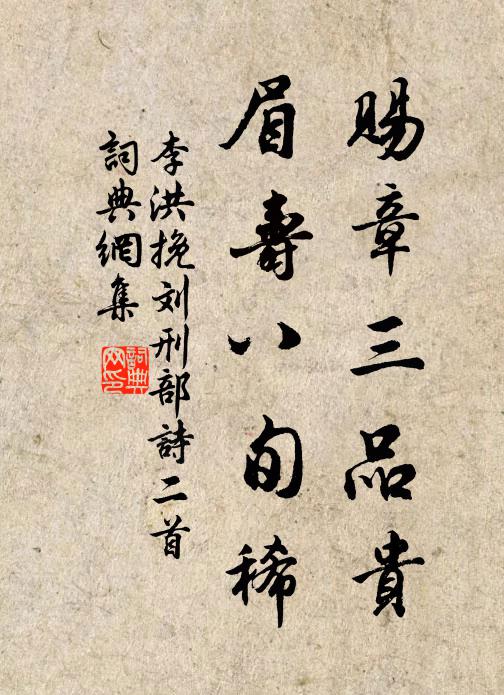 賜章三品貴
眉壽八旬稀
李洪挽刘刑部詩二首
詞典網集
詞典网印